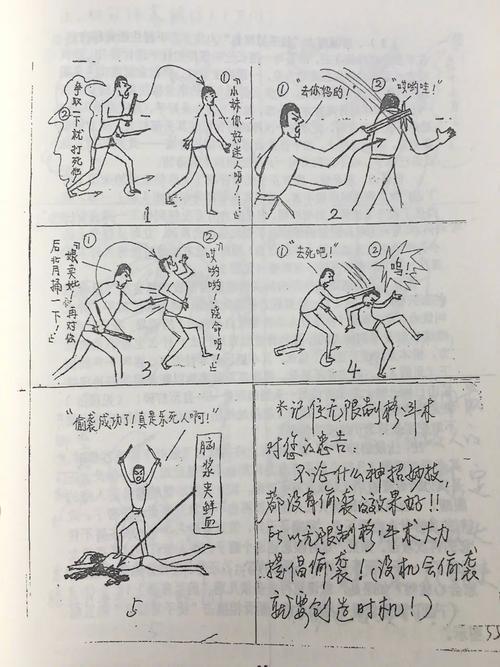 ①
"小妹你好迷人呀!……"
②
争取一下就打死他
1
① "去你妈的!"
② "哎哟哇!"
2
①
再对你
后背捅一下!"
②
"哎哟哟!饶命呀!"
3
① "去死吧!"
②
呜!
4
"偷袭成功了!真是乐死人啊!"
脑浆夹鲜血
5
※记住无限制格斗术
对您的忠告:
不论什么神招妙技,
都没有偷袭的效果好!!
所以无限制格斗术大力
提倡偷袭!(没机会偷袭
就要创造时机!)
55